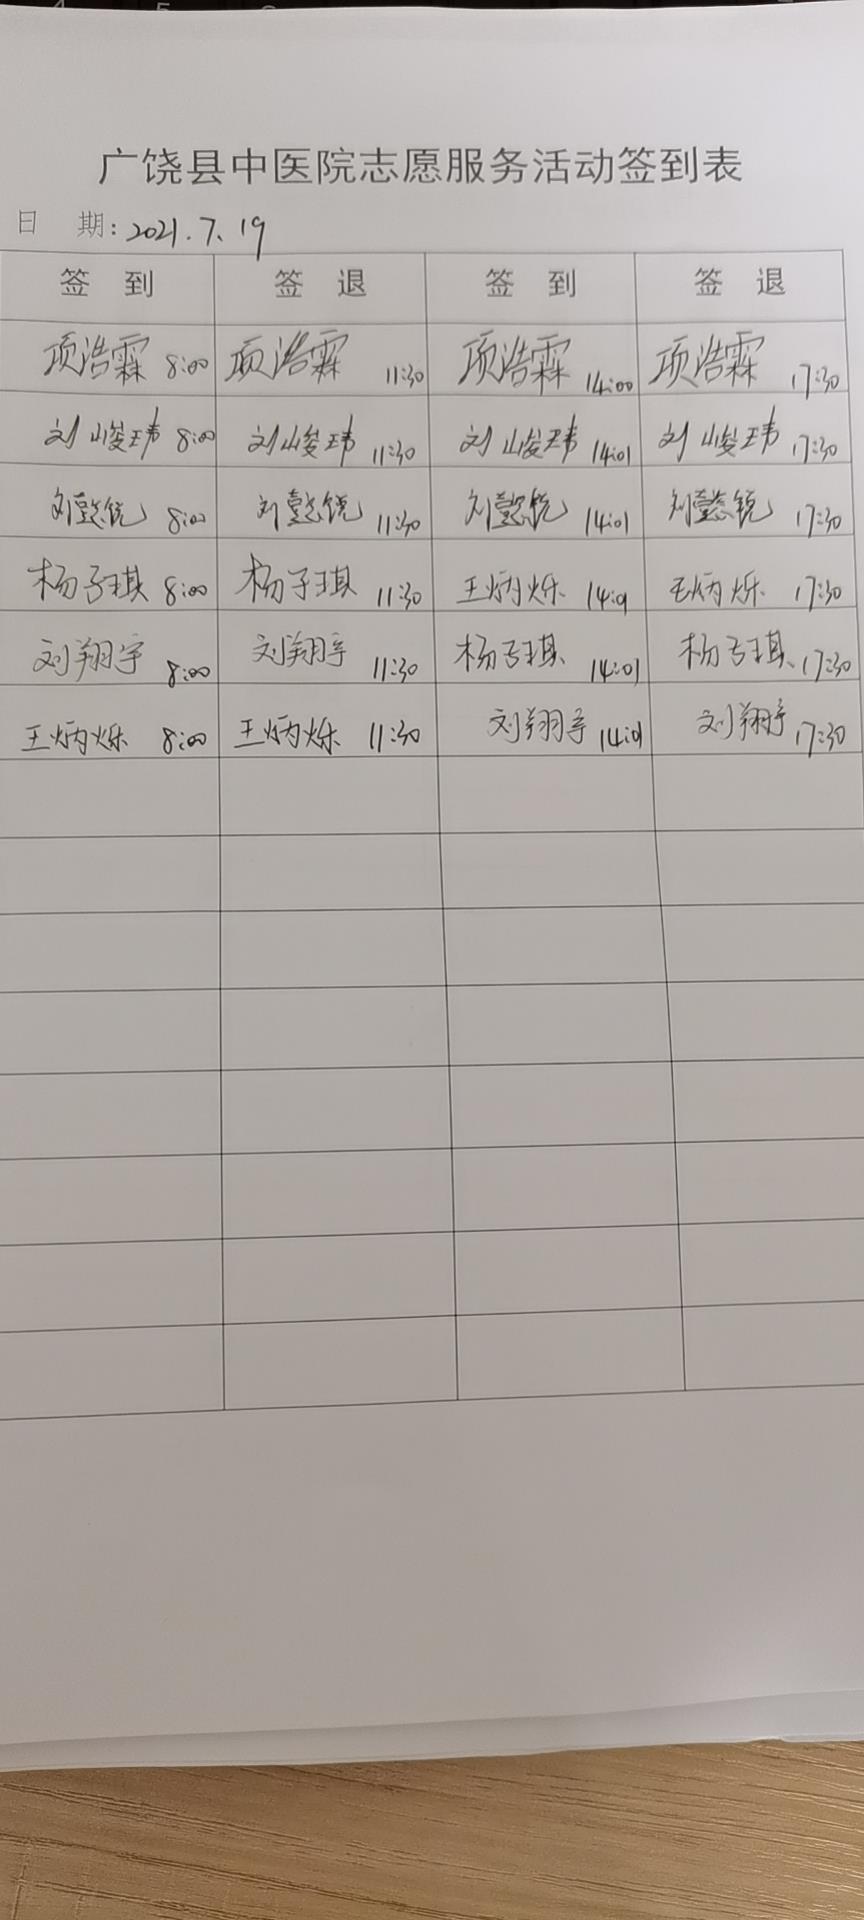 广饶县中医院志愿服务活动签到表
日 期: 2021.7.19
签 到 签 退 签 到 签 退
项浩霖 8:00 项浩霖 11:30 项浩霖 14:00 项浩霖 17:30
刘峻玮 8:00 刘峻玮 11:30 刘峻玮 14:01 刘峻玮 17:30
刘懿锐 8:00 刘懿锐 11:30 刘懿锐 14:01 刘懿锐 17:30
杨子琪 8:00 杨子琪 11:30 王炳烁 14:01 王炳烁 17:30
刘翔宇 8:00 刘翔宇 11:30 杨子琪 14:01 杨子琪 17:30
王炳烁 8:00 王炳烁 11:30 刘翔宇 14:01 刘翔宇 17:30